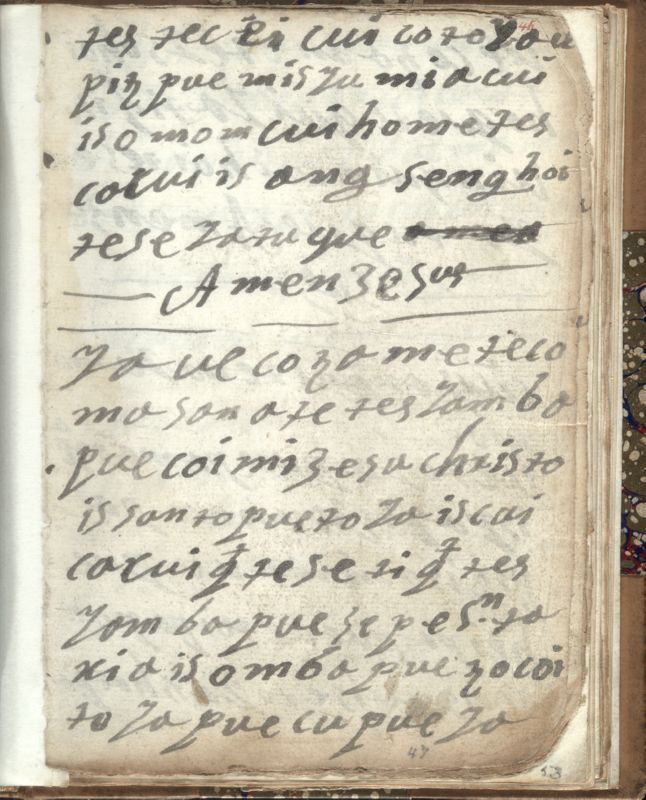 tes tec cui coto
piz pue mis Za mi a cui
is o mom cui home tes
catui is ang seng hoi
tese Zata que
Amen Zesus
Za ue co za me te co
ma sana te tes Zamba
pue coi mi Zesu christo
is santo pue to Za is cui
catui q̃ te se ti q̃ tes
Zam ba pue ze pes.ⁿ ta
xi a is omba pue zo coi
to Za pue cu pue Za
47
53